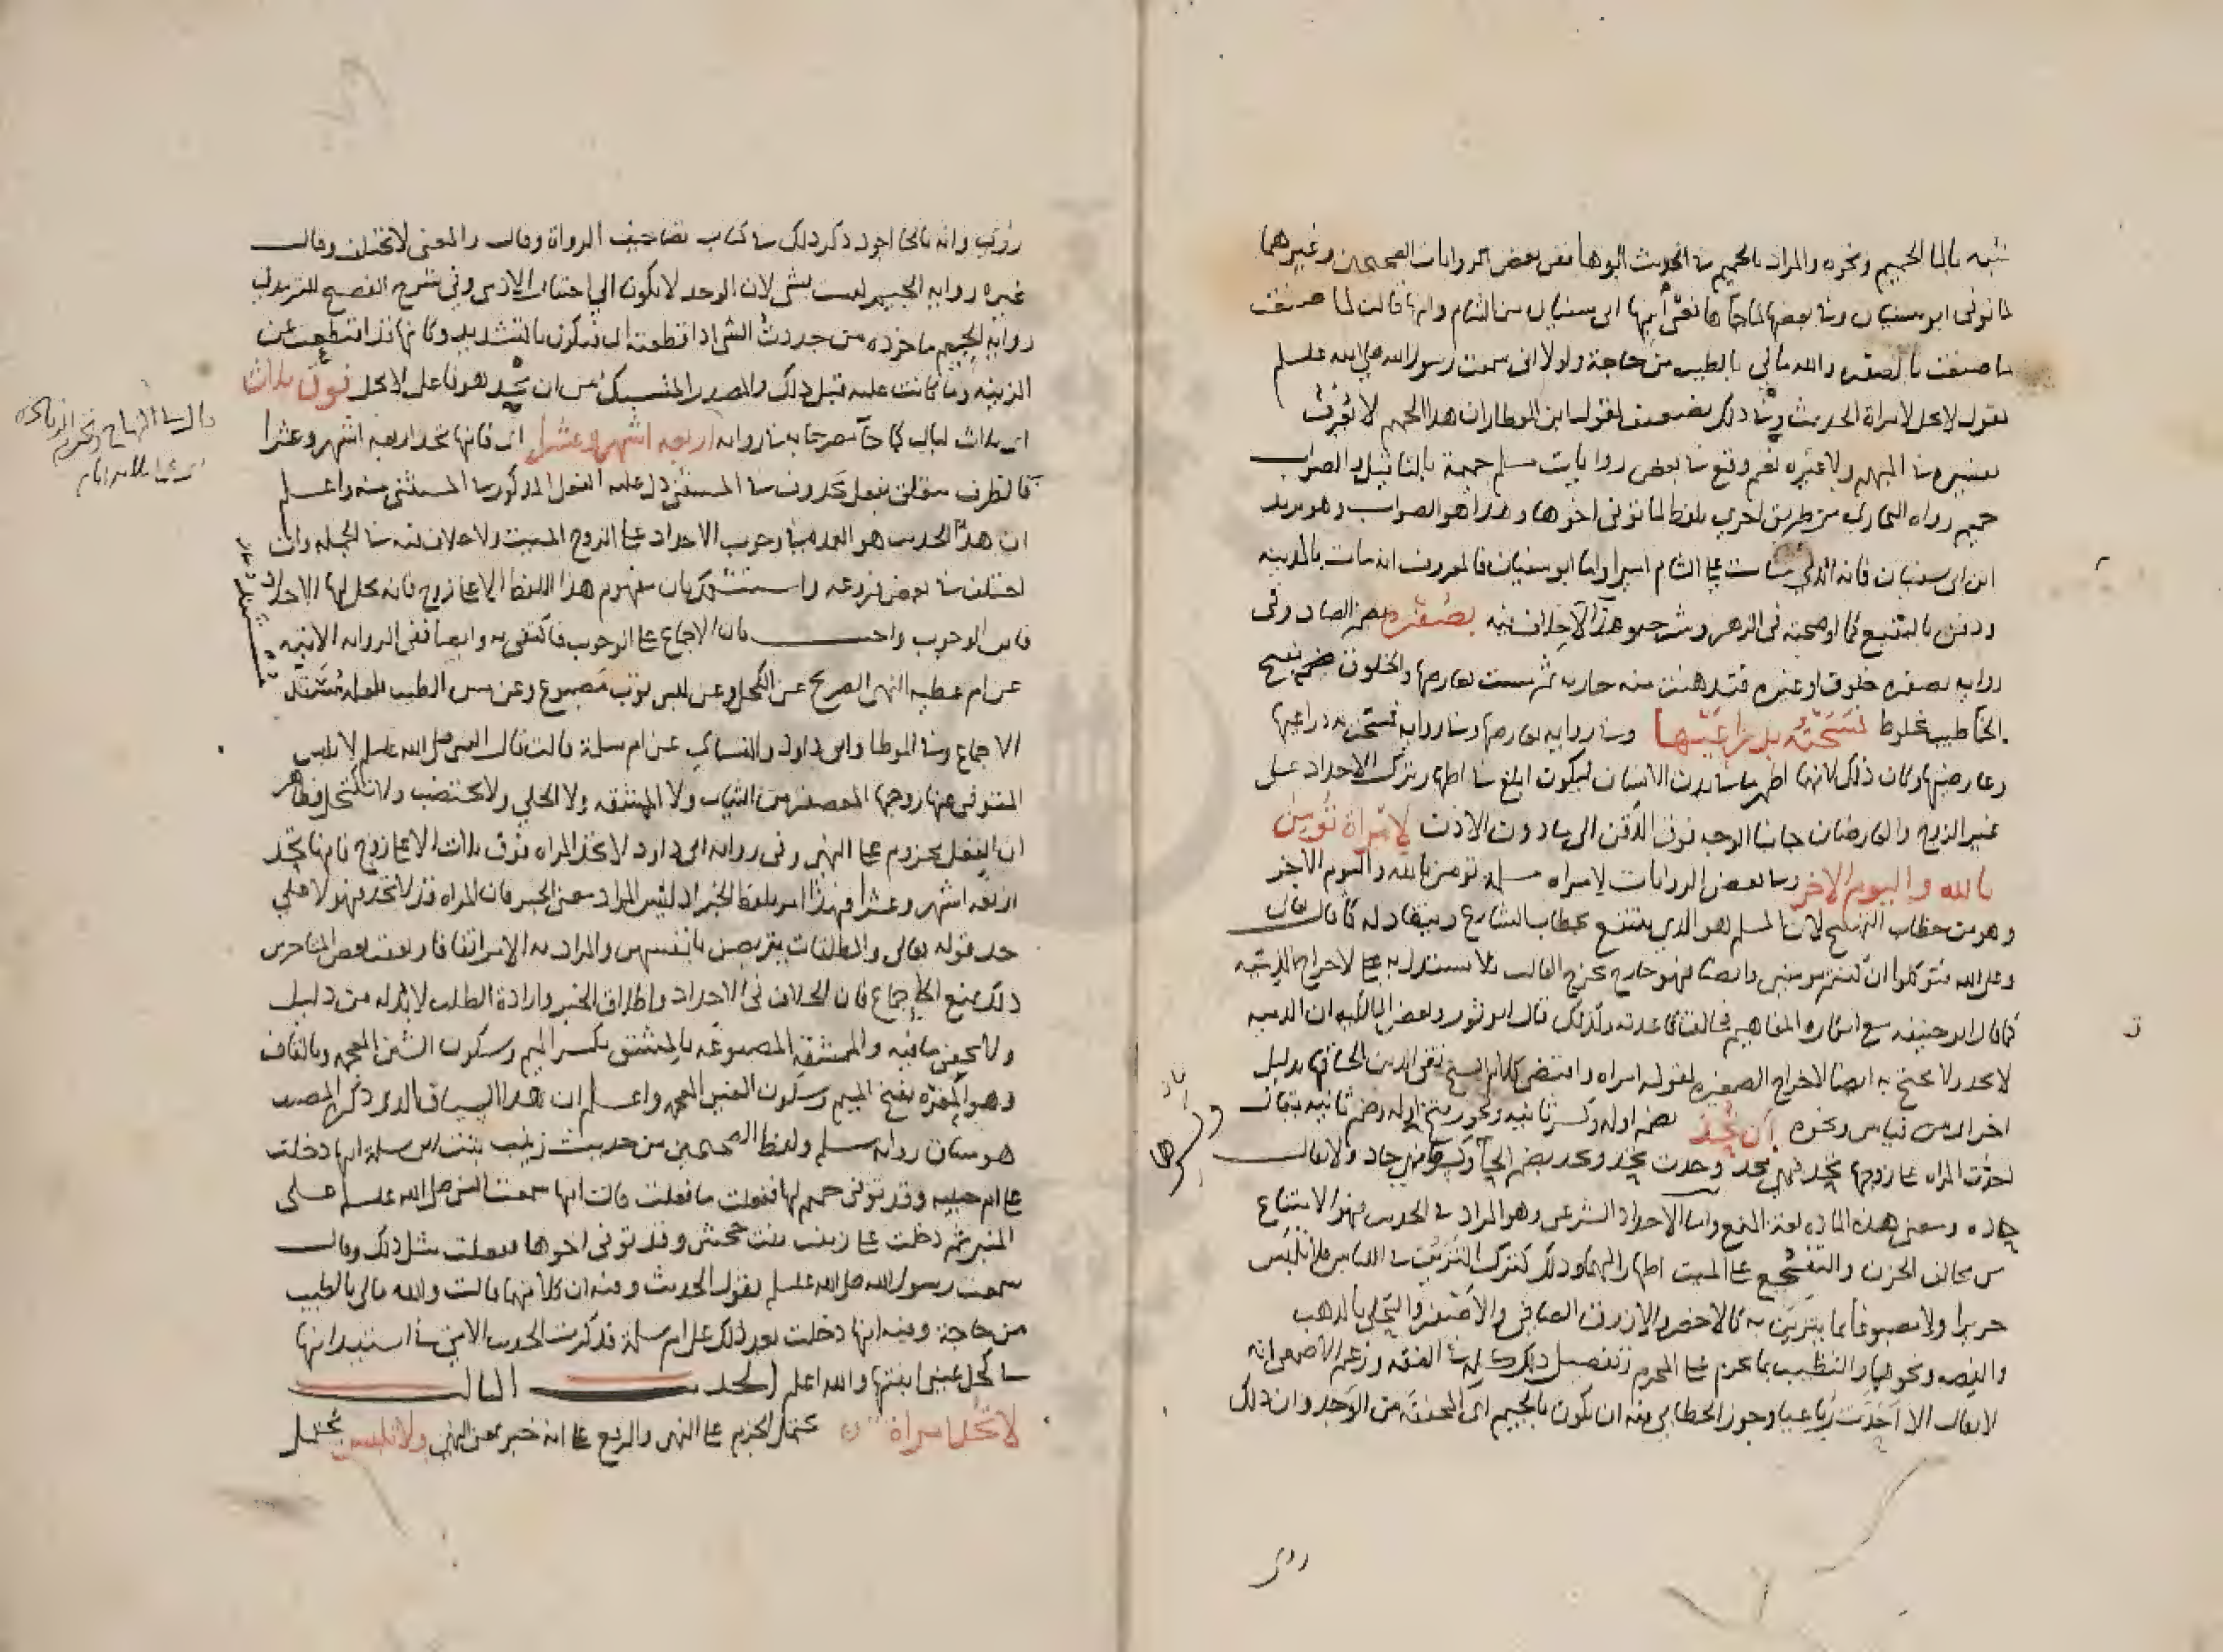 شبه بالما الحميم ونحوه والمراد بالحميم في الحديث ابوها ففي بعض الروايات الصحيحين وغيرهما
لما توفي ابو سفيان وفي بعضها لما جاها نعي ابيها ابي سفيان من الشام وانها قالت لما
ما صنعت بالصفره والله مالي بالطيب من حاجة ولولا اني سمعت رسول الله صلى الله علىه وسلم
يقول لا يحل لامراة الحديث وفي ذلك تضعيف لقول ابن العطار ان هذا الحميم لا يعرف
تعيينه في المبهم ولا غيره نعم وقع في بعض روايات مسلم حميمة بالتانيث والصواب
حميم رواه البخاري من طريق اخرى بلفظ لما توفي اخوها وهذا هو الصواب وهو يزيد
ابن ابي سفيان فانه الذي مات على الشام اميرا واما ابو سفيان فالمعروف انه مات بالمدينه
ودفن بالبقيع كما اوضحته في الزهر وشرحه هذا الاختلاف فيه بصفره بضم الصاد وفي
روايه بصفره خلوق او غيره فدهنت منه جاريه ثم مست بعارضها والخلوق بفتح
الخا طيب مخلوط فمسحته بذراعيها وفي روايه بعارضيها وفي روايه فمسحت به ذراعيها
وعارضيها وكان ذلك لانهما اظهر ما في بدن الانسان ليكون ابلغ في اظهار ترك الاحداد على
غير الزوج والعارضان جانبا الوجه فوق الذقن الى ما دون الاذن لامراة تؤمن
بالله واليوم الاخر وفي بعض الروايات لامراه مسلمة تؤمن بالله واليوم الاخر
وهو من خطاب التهييج لان المسلم هو الذي ينتفع بخطاب الشارع وينقاد له كما قال تعالى
وعلى الله فتوكلوا ان كنتم مومنين وايضا فهو خارج مخرج الغالب فلا يستدل به على اخراج الذميه
كما قال ابو حنيفه مع انكاره المفاهيم مخالفا قاعدته ولذلك قال ابو ثور وبعض المالكيه ان الذميه
لا تحد ولا يحتج به ايضا لاخراج الصغيره لقوله امراه واقتضى كلام الشيخ تقي الدين الحاقها بدليل
اخر اي من قياس ونحوه ان تحد بضم اوله وكسر ثانيه ويجوز فتح اوله وضم ثانيه يقال
احدت المراه على زوجها تحد فهي محد وحدت تحد وتحد بضم الحا وكسرها فهي حاد ولا يقال
حاده ومعنى هذه الماده لغة المنع واما الاحداد الشرعي وهو المراد في الحديث فهو الامتناع
من مخالف الحزن والتفجع على الميت اظهارا لهما وذلك كترك التزين في اللباس فلا تلبس
حريرا ولا مصبوغا بما يتزين به كالاخضر والازرق الصافي والاصفر والتحلي بالذهب
والفضه ونحوها والتطيب بما يحرم على المحرم وتفصيل ذلك كله في الفقه وزعم الاصمعي انه
لا يقال الا احدت رباعيا وجوز الخطابي فيه ان يكون بالجيم اي المخففة من الوجد وان ذلك
روى
روي وانه بالحا اجود ذكر ذلك في كتاب تصاحيف الرواة وقال والمعنى لا يختلف وقال
غيره روايه الجيم ليست بشي لان الوجد لا يكون الى اختيار الادمي وفي شرح الفصيح للتدميري
روايه الجيم ماخوذه من جددت الشي اذا قطعته اي فيكون بالتشديد وكانها قد انقطعت عن
الزينه وما كانت عليه قبل ذلك والمصدر المنسبك من ان تحد هو فاعل لا يحل فوق ثلاث
اي ثلاث ليال كما جا مصرحا به في روايه اربعه اشهر وعشرا اي فانها تحد اربعه اشهر وعشرا
فالظرف متعلق بفعل محذوف في المستثنى دل عليه الفعل المذكور في المستثنى منه واعلم
ان هذا الحديث هو العمده في وجوب الاحداد على الزوج الميت ولا خلاف فيه في الجمله وان
اختلف في بعض فروعه واستشكل بان مفهوم هذا اللفظ الا على زوج فانه يحل لها الاحداد
فاين الوجوب واجيب بان الاجماع على الوجوب فاكتفي به وايضا ففي الروايه الاتيه
عن ام عطيه النهي الصريح عن الكحل وعن لبس ثوب مصبوغ وعن مس الطيب فلعله مستند
الاجماع وفي الموطا وابي داود والنسائي عن ام سلمة قالت قال النبي صلى الله عليه وسلم لا تلبس
المتوفى عنها زوجها المعصفر من الثياب ولا الممشقه ولا الحلي ولا تختضب ولا تكتحل فظاهر
ان الفعل مجزوم على النهي وفي روايه ابي داود لا تحد المراه فوق ثلاث الا على زوج فانها تحد
اربعه اشهر وعشرا فهذا امر بلفظ الخبر اذ ليس المراد معنى الخبر فان المراه قد لا تحد فهو على
حد قوله تعالى والمطلقات يتربصن بانفسهن والمراد به الامر اتفاقا وبعض المتاخرين
ذلك بمنع الاجماع فان الخلاف في الاحداد واطلاق الخبر وارادة الطلب لا بد له من دليل
ولا يخفى ما فيه والممشقه المصبوغه بالمشق بكسر الميم وسكون الشين المعجمه وبالقاف
وهو المغره بفتح الميم وسكون الغين المعجمه واعلم ان هذا السياق الذي ذكره المصنف
هو سياق روايه مسلم ولفظ الصحيحين من حديث زينب بنت ابي سلمة انها دخلت
على ام حبيبه وقد توفي حميم لها ففعلت ما فعلت قالت انها سمعت النبي صلى الله عليه وسلم على
المنبر ثم دخلت على زينب بنت جحش وقد توفي اخوها ففعلت مثل ذلك وقالت
سمعت رسول الله صلى الله عليه وسلم يقول الحديث وفيه ان كلا منهما قالت والله مالي بالطيب
من حاجة وفيه انها دخلت بعد ذلك على ام سلمة فذكرت الحديث الاتي في استئذانها
في كحل عيني ابنتها والله اعلم الحديث الثالث
لا تحد امراة يحتمل الجزم على النهي والرفع على انه خبر بمعنى النهي ولا تلبس يحتمل